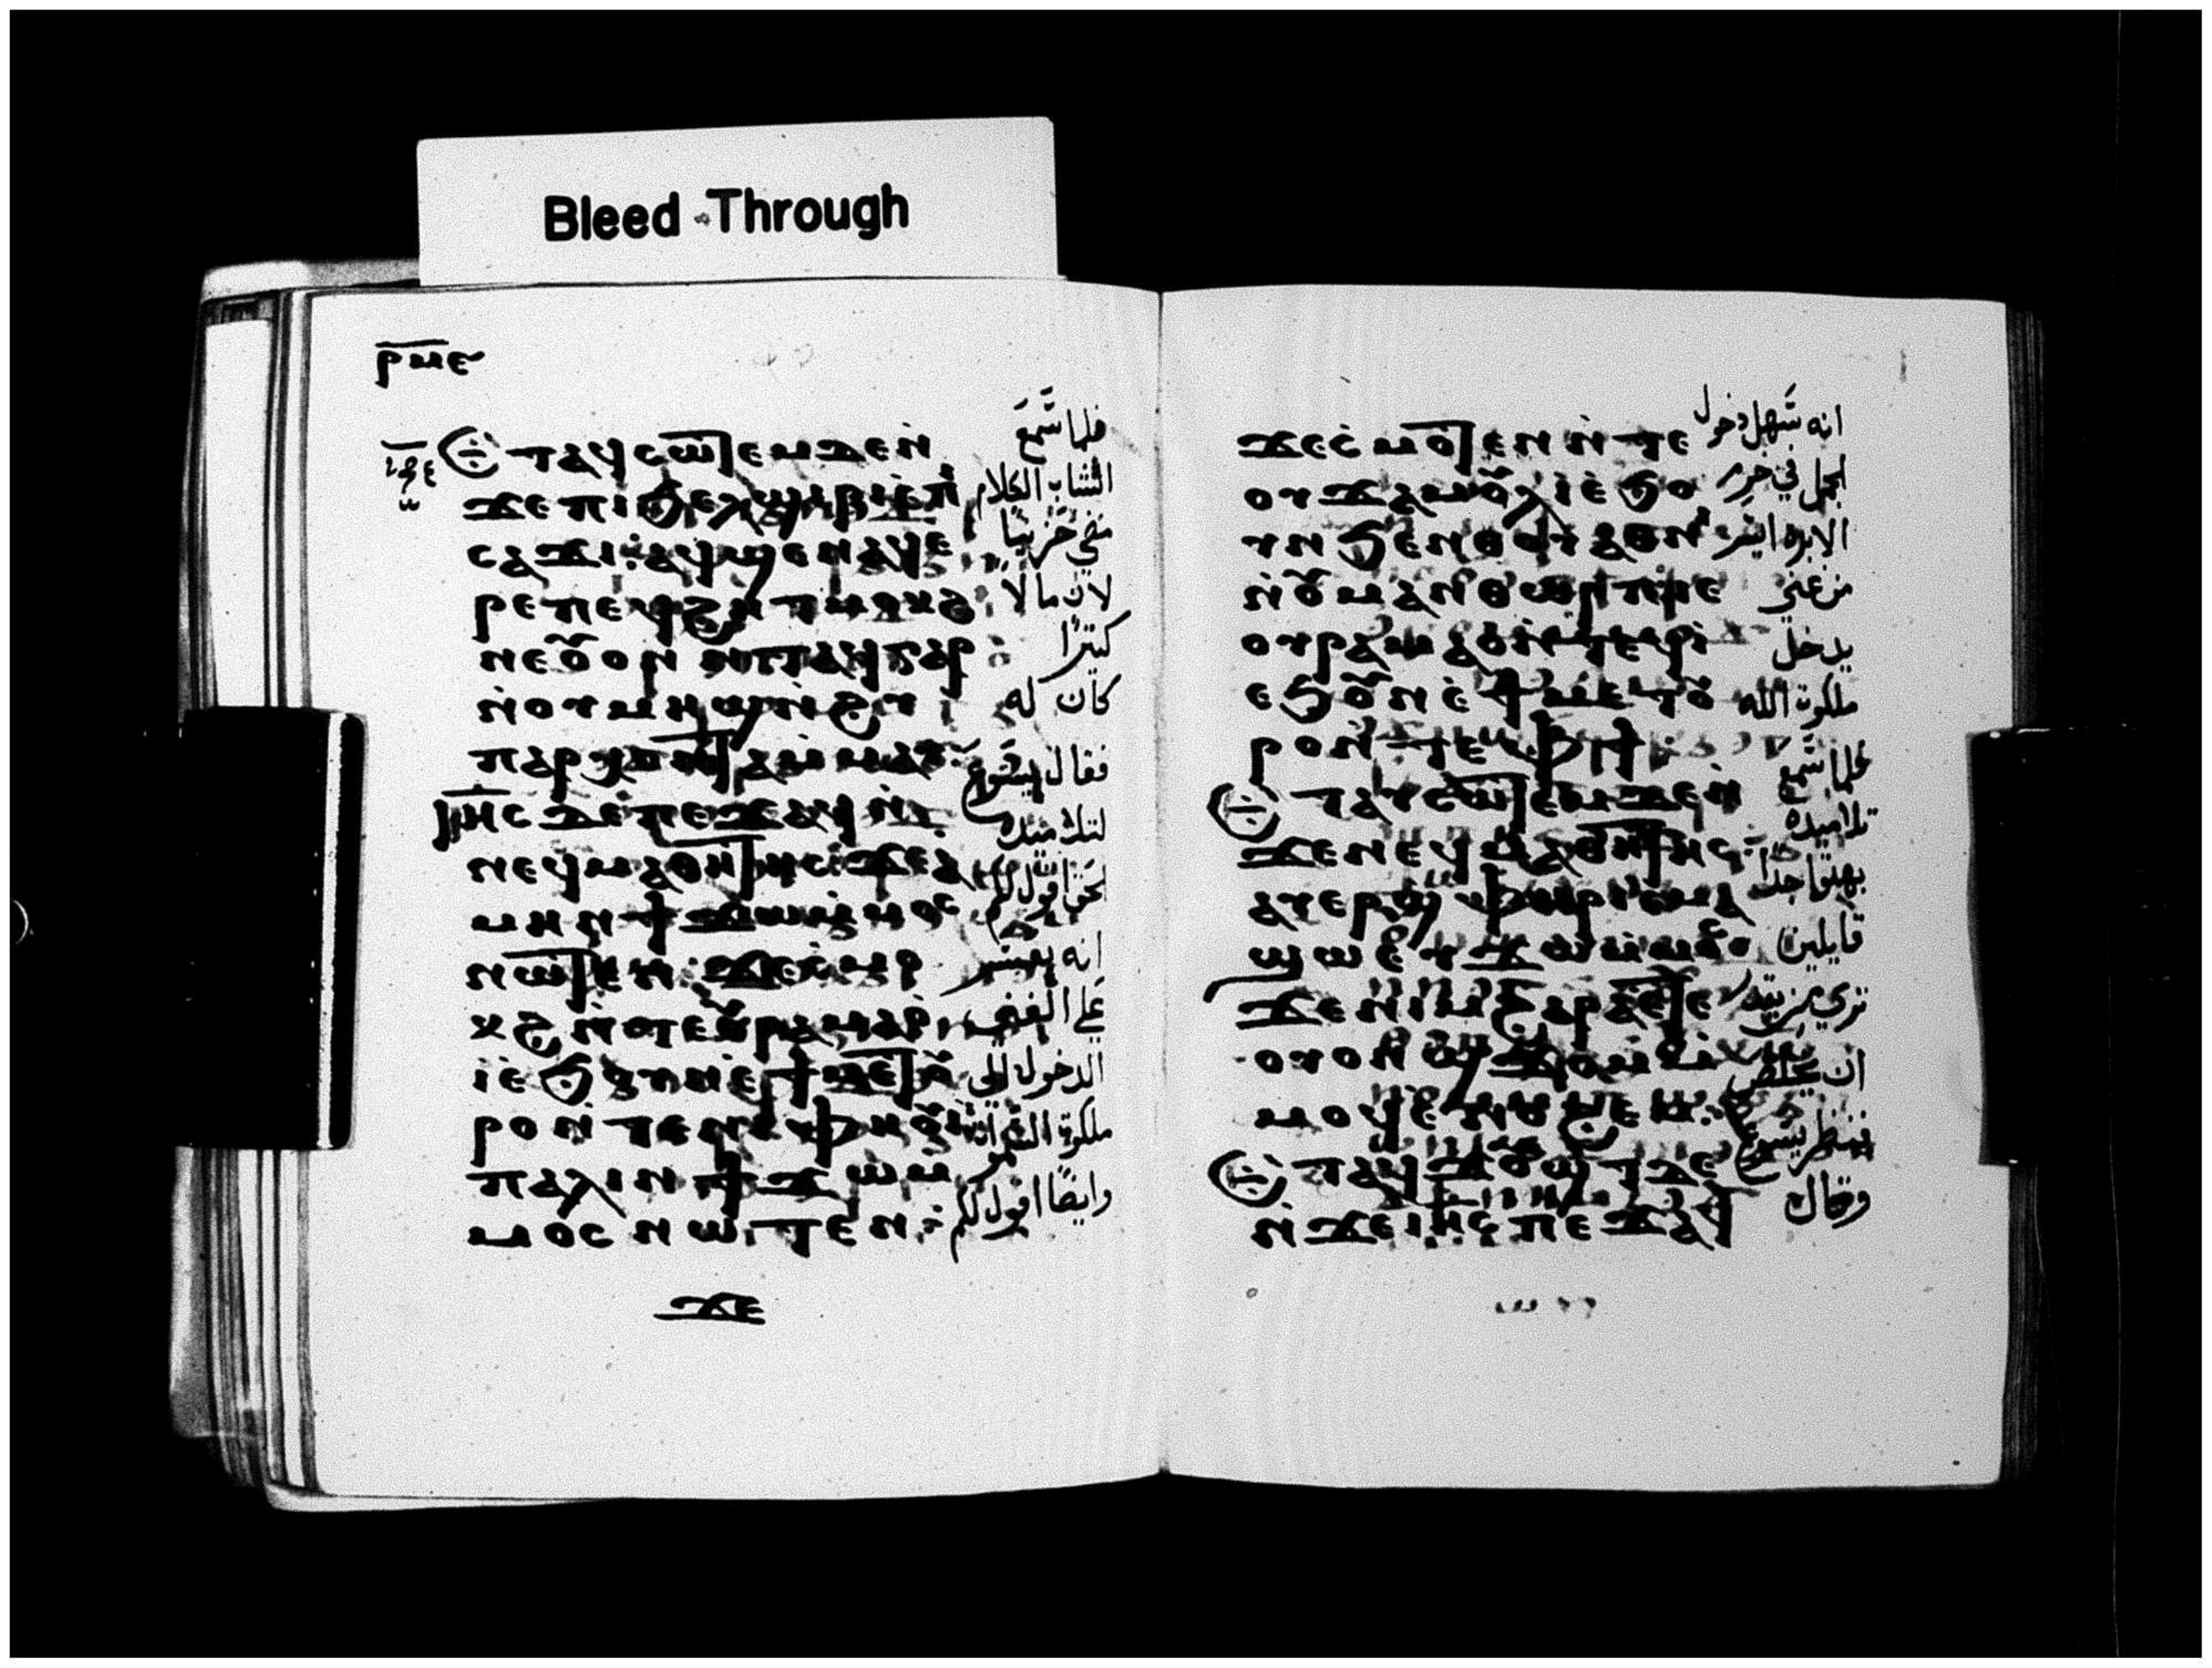 Bleed Through
ⲣⲙⲉ
ⲧⲁϥⲥⲱⲧⲉⲙ ⲇⲉ ⲛ̀
ϫⲉ ⲡⲓϧⲉⲗϣⲓⲣⲓ ⲉ̀ⲡⲓ
ⲥⲁϫⲓ ⲁϥϣⲉⲛⲁϥ ⲉ
ⲣⲉ ⲡⲉϥϩⲏⲧ ⲙⲟⲕϩ
ⲛⲉ ⲟⲩⲟⲛ
ⲛ̀ⲟⲩⲙⲏϣ ⲛ̀ϩⲩ
ⲡⲁⲣⲭⲱⲛⲧⲁ ⲙⲙⲁⲩ
ⲓⲏⲥ ⲇⲉ ⲡⲉϫⲁϥ ⲛ̀
ⲛⲉϥⲙⲁⲑⲏⲧⲏⲥ ϫⲉ ⲁ
ⲙⲏⲛ ϯϫⲱ ⲙ̀ⲙⲟⲥ
ⲛⲱⲧⲉⲛ ϫⲉ ⲥ̀ⲙⲟ
ⲕϩ ⲛ̀ⲧⲉ ⲟⲩⲣⲁⲙⲁⲟ̀
ⲓ̀ ⲉ̀ϧⲟⲩⲛ ⲉ̀ϯⲙⲉⲧⲟⲩ
ⲣⲟ ⲛ̀ⲧⲉ ⲛⲓⲫⲏⲟⲩⲓ̀
ⲡⲁⲗⲓⲛ ϯϫⲱ ⲙ
ⲙⲟⲥ ⲛⲱⲧⲉⲛ
ϫⲉ
فلما سمع
الشاب الكلام
مضى حزينًا
لان مالا
كثيرًا
كان له
فقال يسوع
لتلاميذه
الحق اقول لكم
انه يعسر
على الغني
الدخول الى
ملكوة السموات
وايضًا اقول لكم
ϫⲉ ⲥ̀ⲙⲟⲧⲉⲛ ⲛ̀ⲧⲉ
ⲟⲩϫⲁⲙⲟⲩⲗ ⲓ̀ ⲉ̀ϧⲟ
ⲩⲛ ϧⲉⲛ ⲑⲟⲩⲁⲑⲟⲩⲓ
ⲛ̀ⲟⲩⲙⲁⲛⲑⲱⲣⲡ ⲓⲉ
ⲟⲩⲣⲁⲙⲁⲟ ⲛ̀ⲧⲉϥⲓ̀
ⲉϧⲟⲩⲛ ⲉ̀ϯⲙⲉⲧⲟⲩ
ⲣⲟ ⲛ̀ⲧⲉ ⲫϯ
ⲧⲁⲩⲥⲱⲧⲉⲙ ⲇⲉ ⲛ̀
ϫⲉ ⲛⲉϥⲙⲁⲑⲏⲧⲏⲥ
ⲁⲩⲉⲣϣⲫⲏⲣⲓ ⲉⲙⲁ
ϣⲱ ⲉⲩϫⲱ ⲙ̀ⲙⲟⲥ
ϫⲉ ⲛⲓⲙ ϩⲁⲣⲁ ⲉⲧⲉ
ⲟⲩⲟⲛ ϣϫⲟⲙ ⲙ̀
ⲙⲟϥ ⲉ̀ⲛⲟϩⲉⲙ
ⲧⲁϥϫⲟⲩϣⲧ ⲇⲉ
ⲛ̀ϫⲉ ⲓⲏⲥ ⲡⲉϫⲁϥ
انه سهل دخول
الجمل في خرم
الابرة ايسر
من غني
يدخل
ملكوة الله
فلما سمع
تلاميذه
بهتوا جدًا
قايلين
ترى من يقدر
ان يخلص
فنظر يسوع
وقال